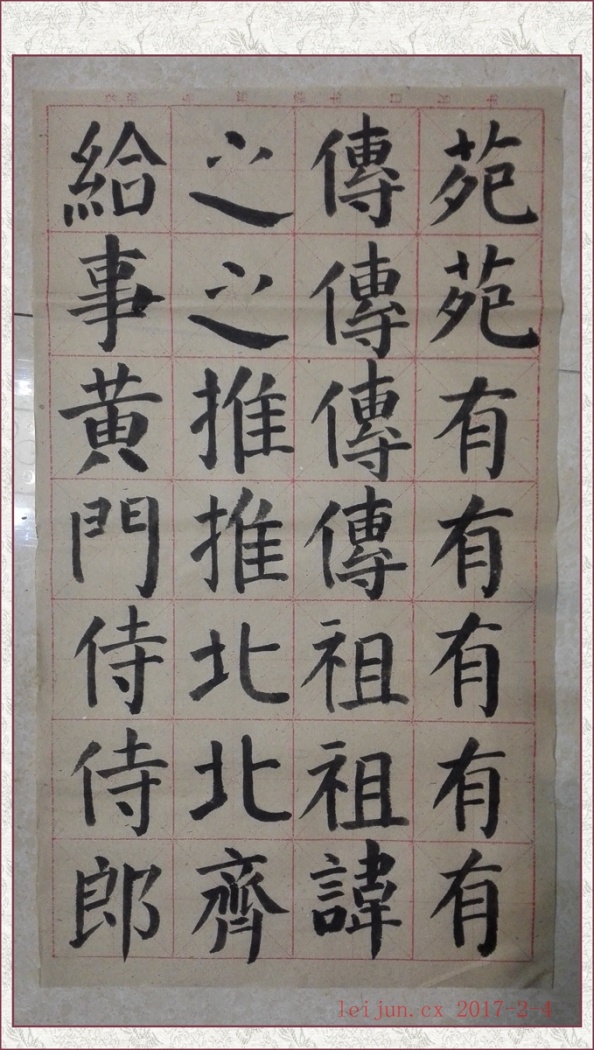 苑苑有有有有有
傳傳傳傳祖祖諱
之之推推北北齊
給事黄門侍侍郎
leijun.cx 2017-3-4